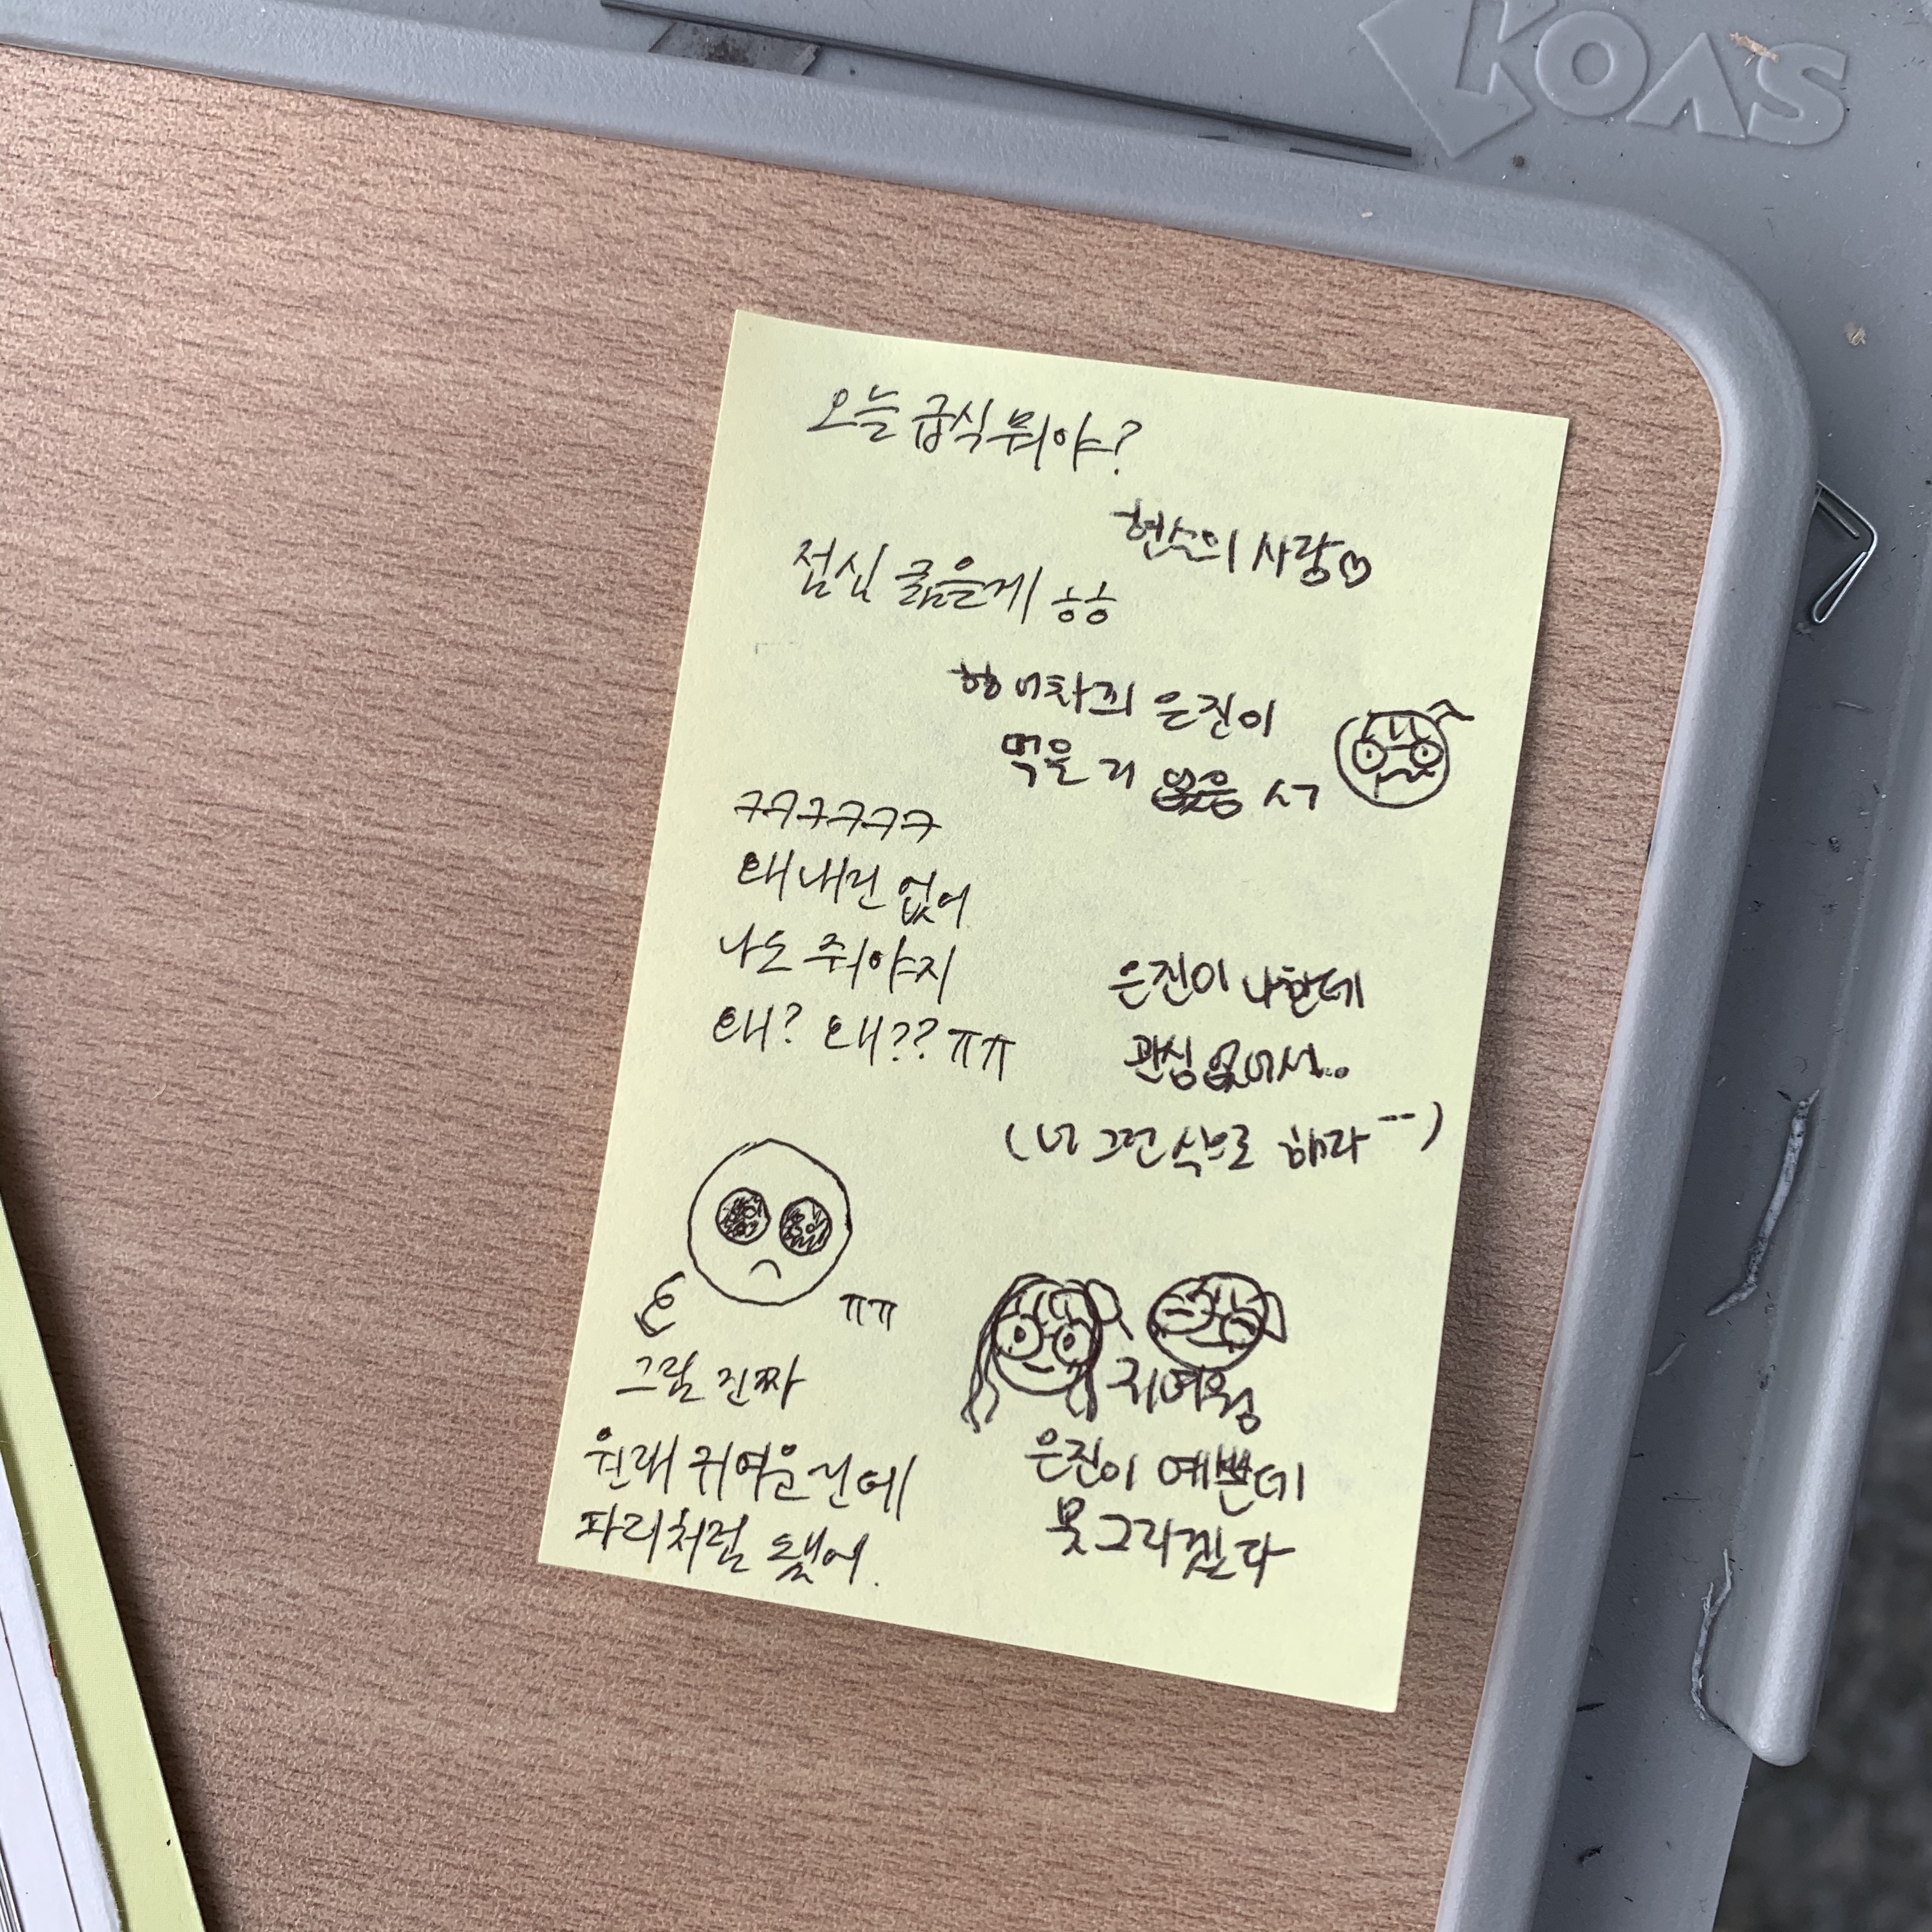 KOAS
오늘 급식 뭐야?
현수의 사랑♡
점심 굶을게 ㅎㅎ
어차피 은진이
먹을 리 없음 ㅅㄱ
ㅋㅋㅋㅋㅋㅋ
왜 내건 없어
나도 줘야지
왜? 왜?? ㅠㅠ
은진이 나한테
관심 없어서..
(너 그런 식으로 해라 --)
ㅠㅠ
그림 진짜
원래 귀여운건데
파리처럼 됐어.
귀여웡
은진이 예쁜데
못 그리겠다